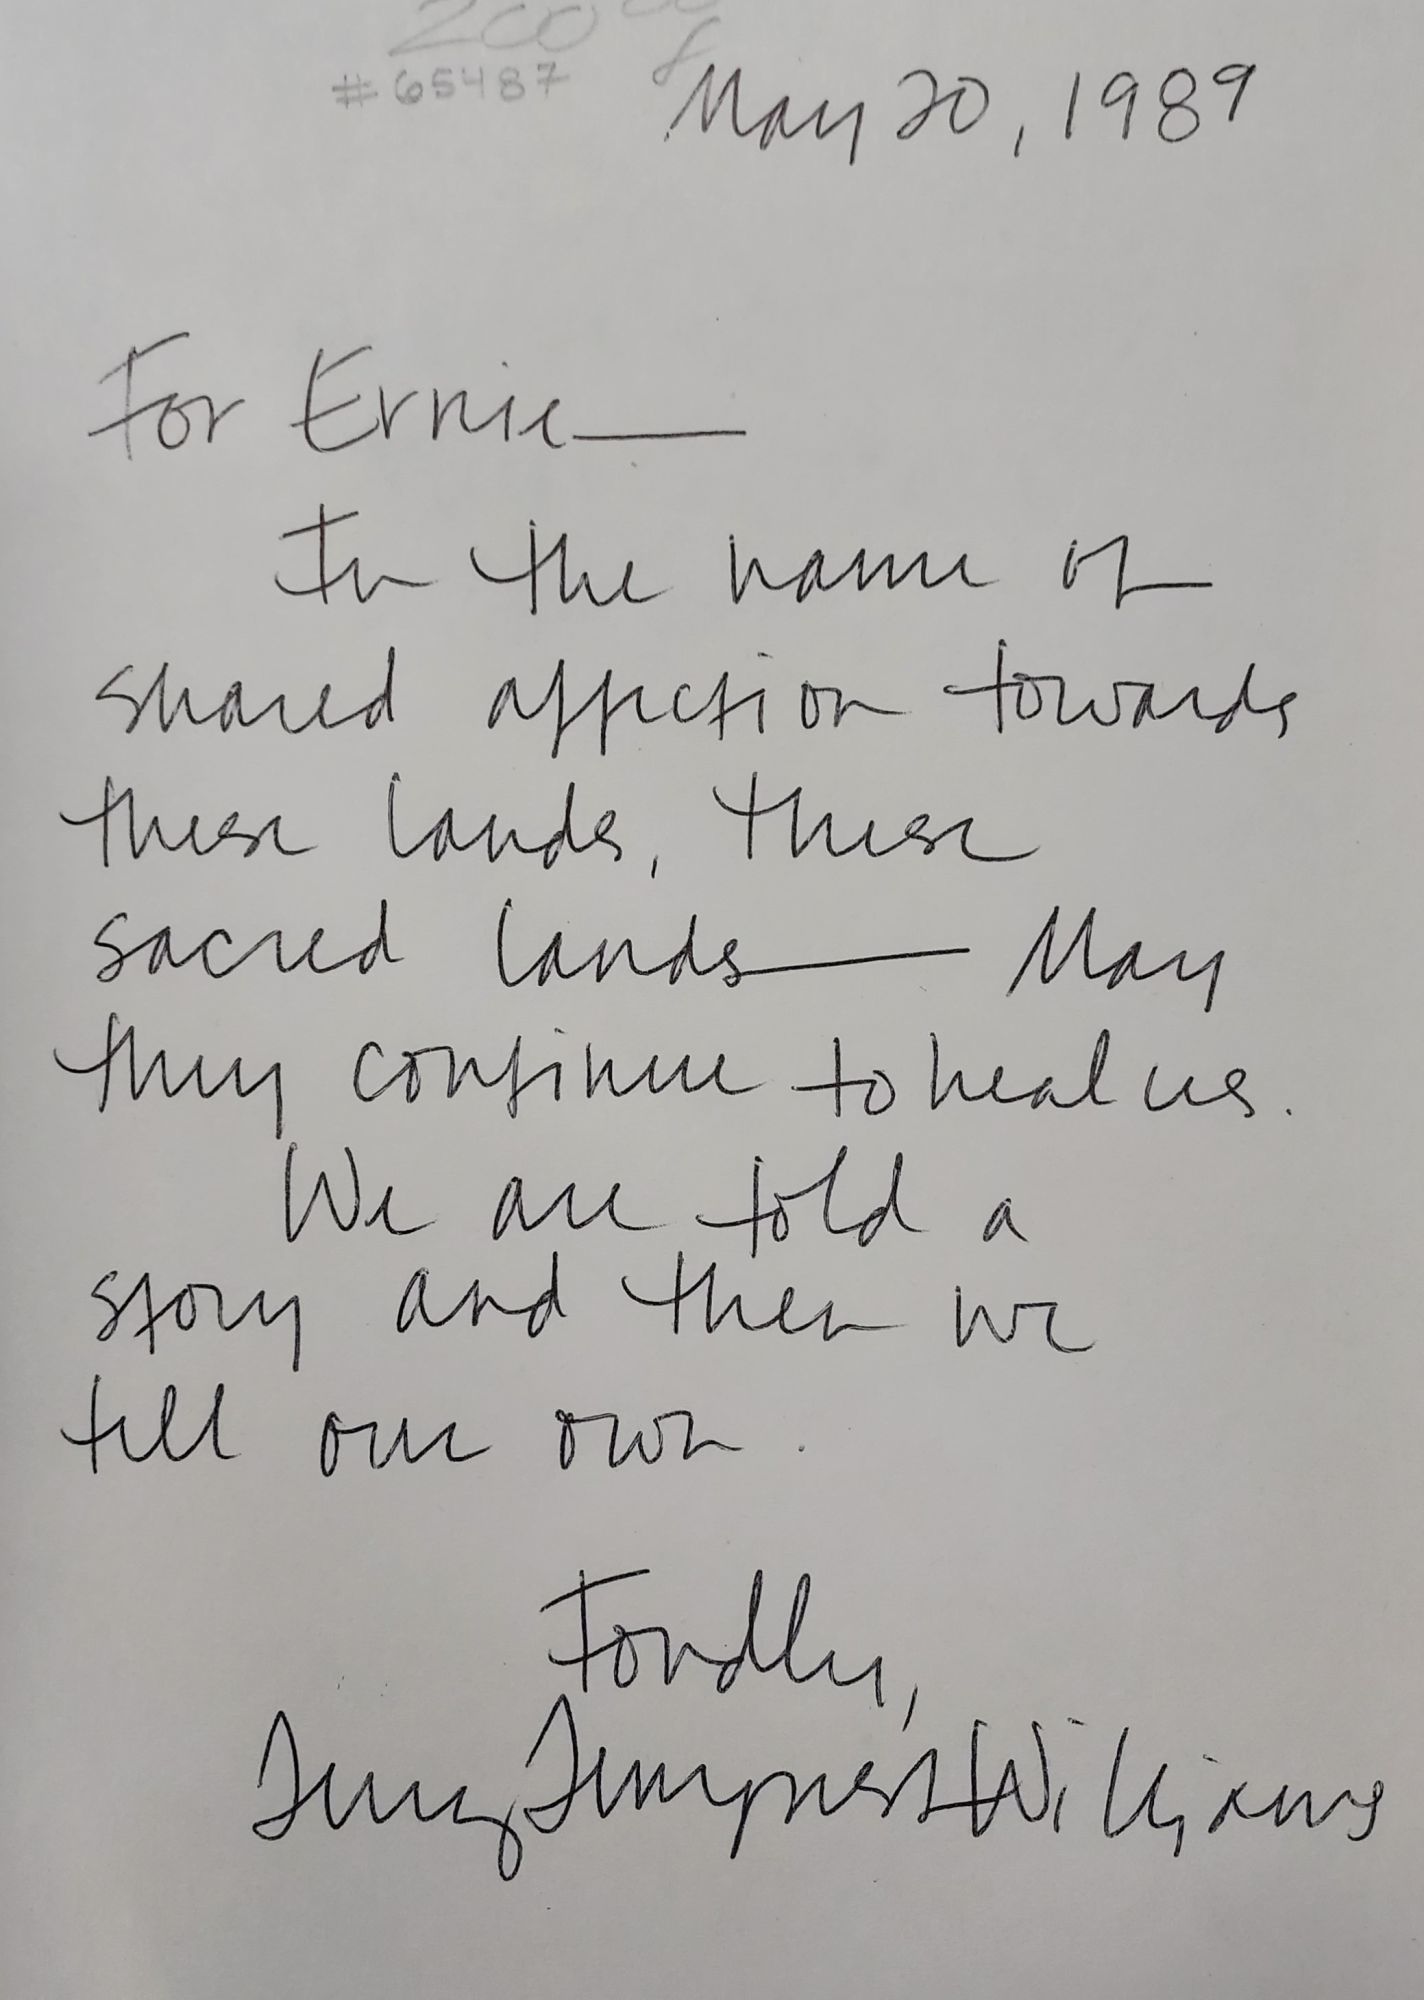 200
#65487
May 20, 1989
For Ernie—
In the name of
shared affection towards
these lands, these
sacred lands— May
they continue to heal us.
We are told a
story and then we
tell our own.
Fondly,
Terry Tempest Williams